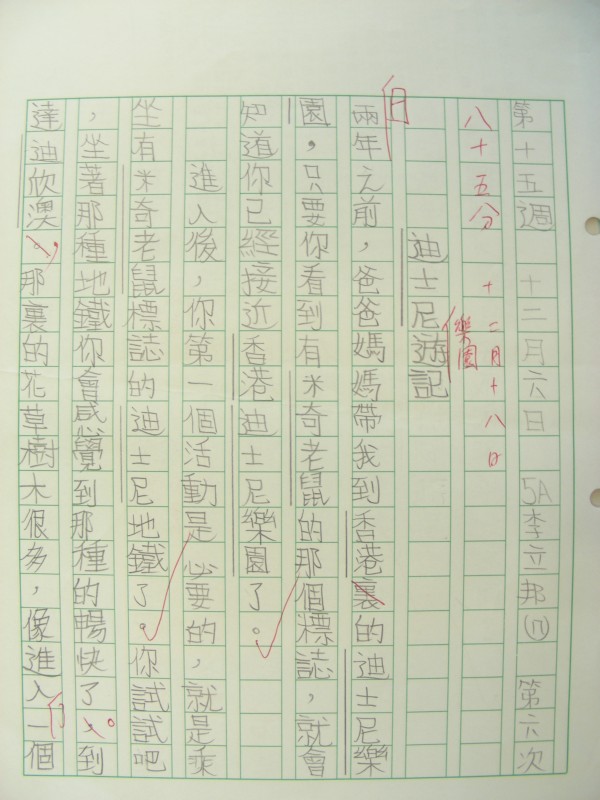 第十五週 十二月六日 5A李立邦(17) 第六次
八十五分 十二月十八日
迪士尼遊記
樂園
日
兩年之前，爸爸媽媽帶我到香港裏的迪士尼樂
園，只要你看到有米奇老鼠的那個標誌，就會
知道你已經接近香港迪士尼樂園了。
進入後，你第一個活動是必要的，就是乘
坐有米奇老鼠標誌的迪士尼地鐵了。你試試吧
，坐著那種地鐵你會感覺到那種的暢快了。到
達迪欣澳，那裏的花草樹木很多，像進入一個